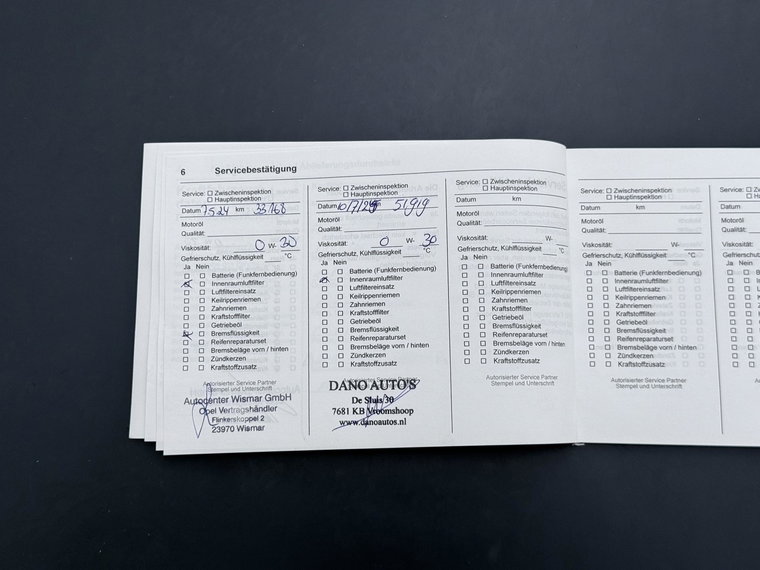 6 Servicebestätigung
Service: Zwischeninspektion
Hauptinspektion
Datum 7524 km 33168
Motoröl
Qualität:
Viskosität: 0 W- 30
Gefrierschutz, Kühlflüssigkeit °C
Ja Nein
Batterie (Funkfernbedienung)
Innenraumluftfilter
Luftfiltereinsatz
Keilrippenriemen
Zahnriemen
Kraftstofffilter
Getriebeöl
Bremsflüssigkeit
Reifenreparaturset
Bremsbeläge vorn / hinten
Zündkerzen
Kraftstoffzusatz
Autorisierter Service Partner
Stempel und Unterschrift
Autocenter Wismar GmbH
Opel Vertragshändler
Flinkerskoppel 2
23970 Wismar
Service: Zwischeninspektion
Hauptinspektion
Datum 10/7/25 51919
Motoröl
Qualität:
Viskosität: 0 W- 30
Gefrierschutz, Kühlflüssigkeit °C
Ja Nein
Batterie (Funkfernbedienung)
Innenraumluftfilter
Luftfiltereinsatz
Keilrippenriemen
Zahnriemen
Kraftstofffilter
Getriebeöl
Bremsflüssigkeit
Reifenreparaturset
Bremsbeläge vorn / hinten
Zündkerzen
Kraftstoffzusatz
DANO AUTO'S
De Sluis 30
7681 KB Vroomshoop
www.danoautos.nl
Service: Zwischeninspektion
Hauptinspektion
Datum km
Motoröl
Qualität:
Viskosität: W-
Gefrierschutz, Kühlflüssigkeit °C
Ja Nein
Batterie (Funkfernbedienung)
Innenraumluftfilter
Luftfiltereinsatz
Keilrippenriemen
Zahnriemen
Kraftstofffilter
Getriebeöl
Bremsflüssigkeit
Reifenreparaturset
Bremsbeläge vorn / hinten
Zündkerzen
Kraftstoffzusatz
Autorisierter Service Partner
Stempel und Unterschrift
Service: Zwischeninspektion
Hauptinspektion
Datum km
Motoröl
Qualität:
Viskosität: W-
Gefrierschutz, Kühlflüssigkeit °C
Ja Nein
Batterie (Funkfernbedienung)
Innenraumluftfilter
Luftfiltereinsatz
Keilrippenriemen
Zahnriemen
Kraftstofffilter
Getriebeöl
Bremsflüssigkeit
Reifenreparaturset
Bremsbeläge vorn / hinten
Zündkerzen
Kraftstoffzusatz
Autorisierter Service Partner
Stempel und Unterschrift
Service:
Datum
Motoröl
Qualität:
Viskosität:
Ja Nein